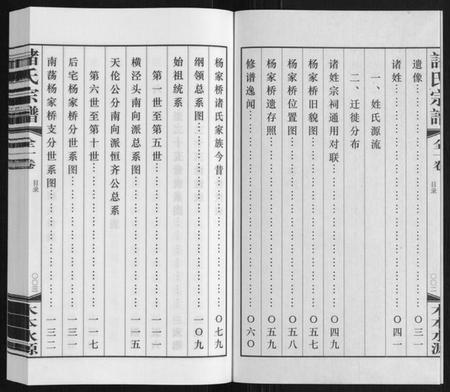 諸氏宗譜
全一卷
目录
木本水源
遗像……………〇三一
诸姓……………〇四一
一、姓氏源流
二、迁徙分布
诸姓宗祠通用对联……………〇四九
杨家桥旧貌图……………〇五七
杨家桥位置图……………〇五八
杨家桥遗存照……………〇五九
修谱逸闻……………〇六〇
杨家桥诸氏家族今昔……………〇七九
纲领总系图……………一〇九
始祖统系
第一世至第五世……………一一一
横泾头南向派总系图……………一一五
天伦公分南向派恒齐公总系
第六世至第十世……………一一七
后宅杨家桥分世系图……………一三一
南荡杨家桥支分世系图……………一三二
諸氏宗譜
全一卷
目录
木本水源